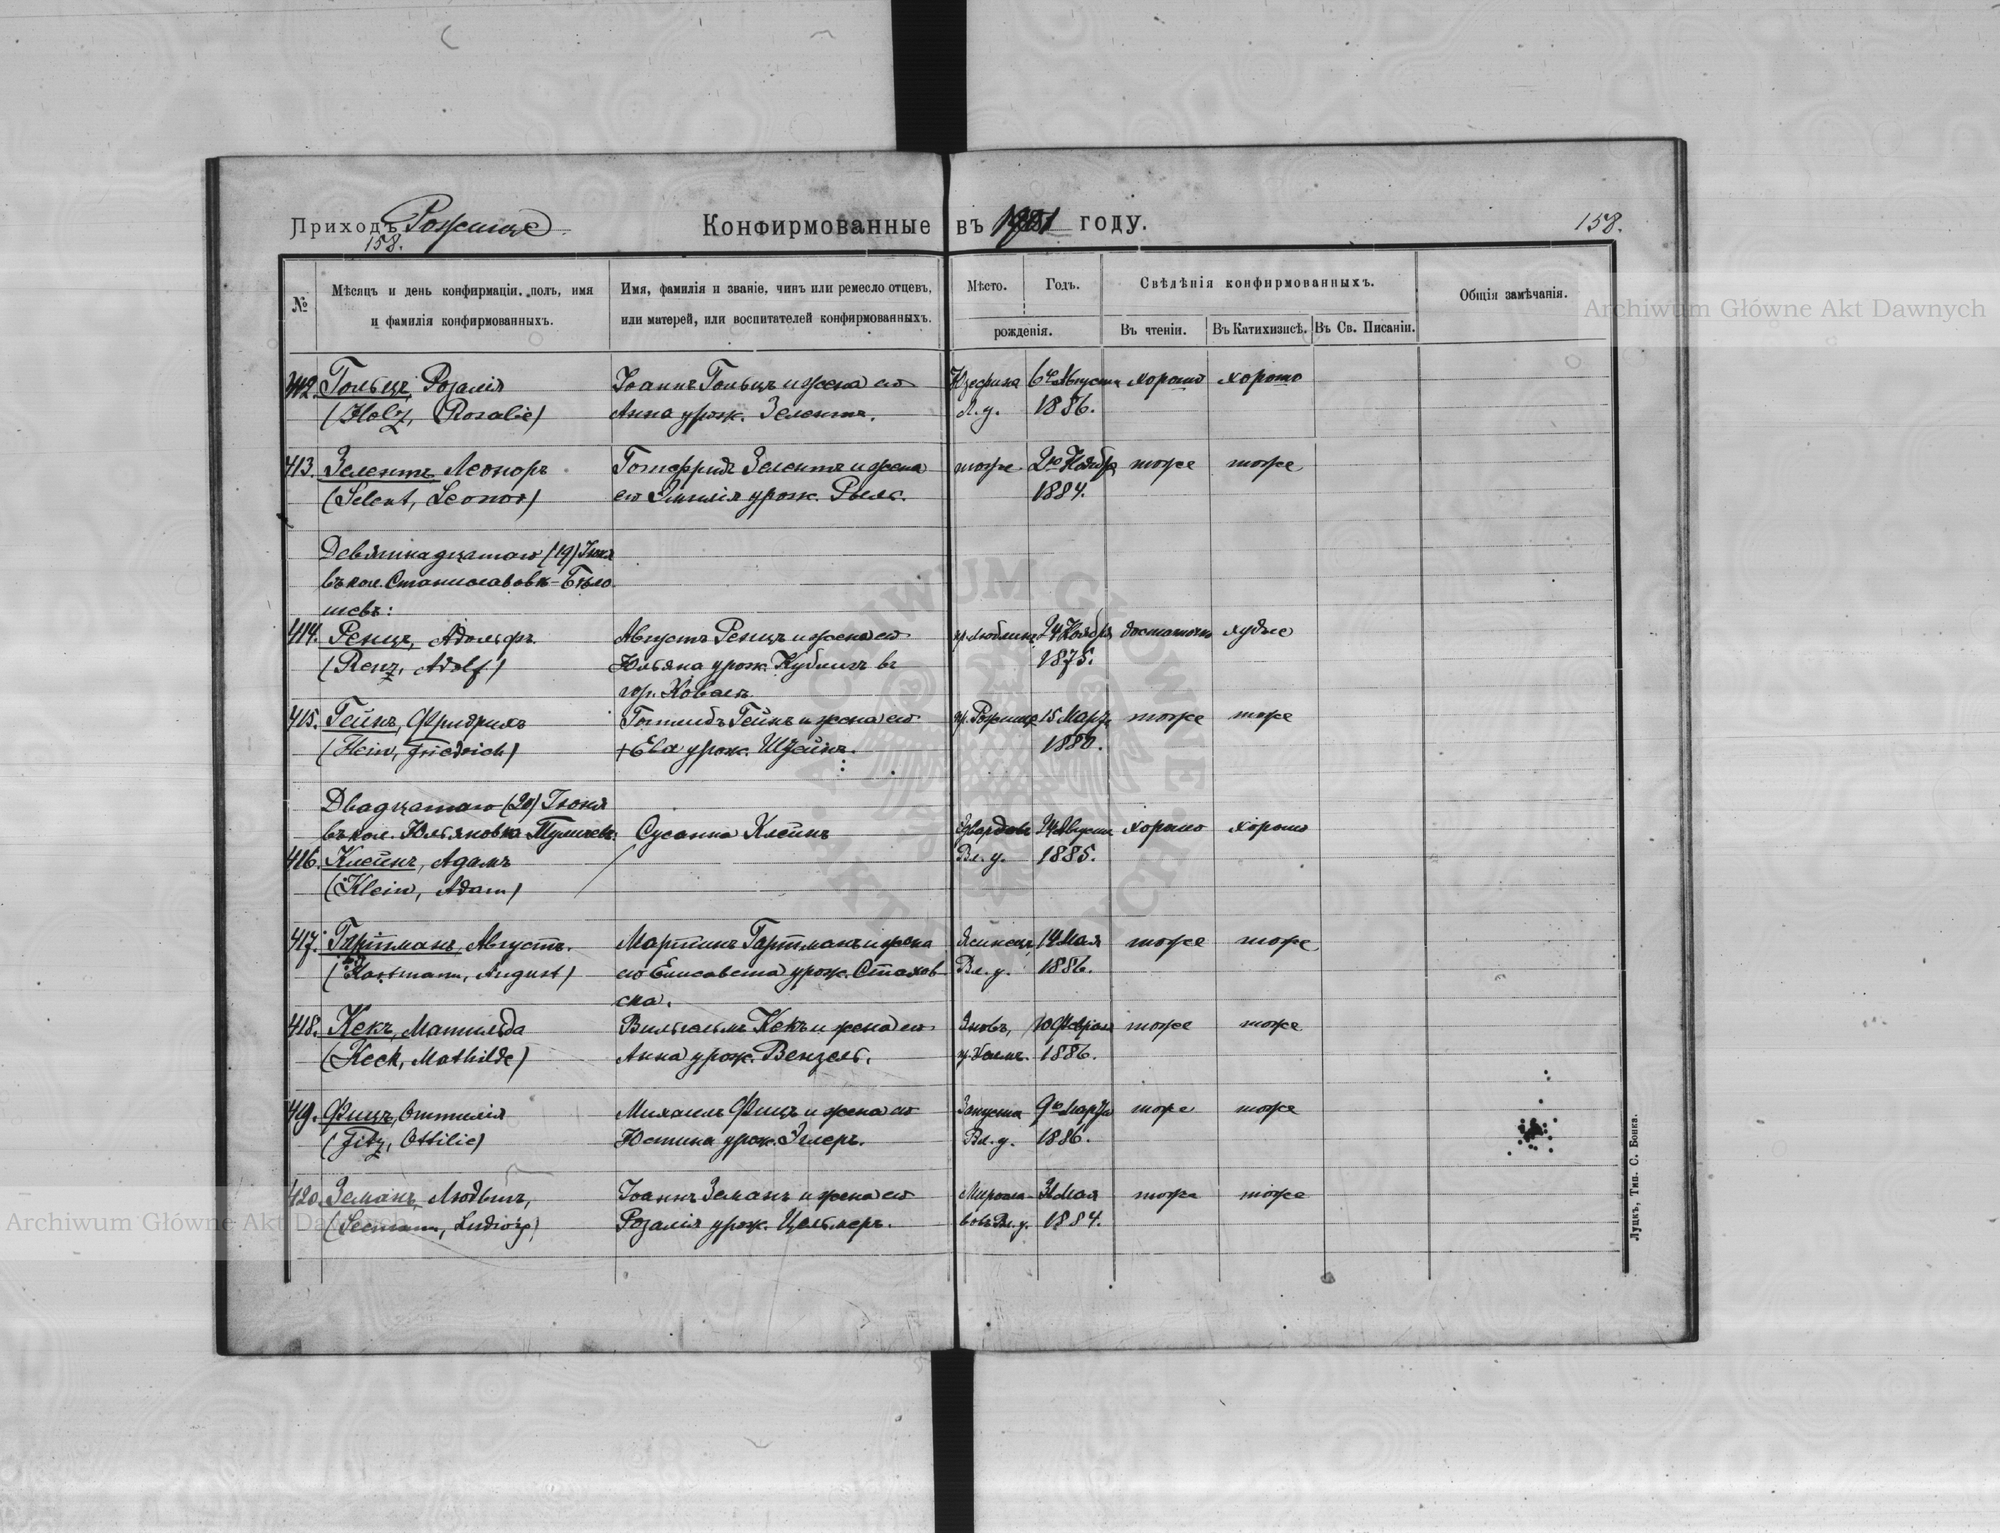 Приходъ Рожище
Конфирмованные въ 1901 году.
158.
158.
№
Мѣсяцъ и день конфирмаціи, полъ, имя
и фамилія конфирмованныхъ.
Имя, фамилія и званіе, чинъ или ремесло отцевъ,
или матерей, или воспитателей конфирмованныхъ.
Мѣсто.
Годъ.
рожденія.
Свѣдѣнія конфирмованныхъ.
Въ чтеніи.
Въ Катихизисѣ.
Въ Св. Писаніи.
Общія замѣчанія.
412. Гольцъ, Розалія Іоаннъ Гольцъ и жена его 6го Августа хорошо хорошо
(Holz, Rosalie) Анна урож. Зелентъ. Л. у. 1886.
413. Зелентъ Леоноръ Готфридъ Зелентъ и жена тоже 2го Ноября тоже тоже
(Selent, Leonor) его Эмилія урож. 1884.
Девятнадцатаго (19) Іюня
въ кол. Станиславовкѣ-Бѣло
шевъ:
414. Ренцъ, Адольфъ Августъ Ренцъ и жена его 24 Ноября достаточно
(Renz, Adolf) Юльяна урож. въ 1875.
гор. Ковель
415. Гейнъ, Фридрихъ Готлибъ Гейнъ и жена его Рожище 15 Марта тоже тоже
(Hein, Friedrich) +Ева урож. Штейнъ. 1880.
Двадцатаго (20) Іюня
въ кол. Юльяновка Туличевъ: Сусанна Клейнъ 24 Августа хорошо хорошо
416. Клейнъ, Адамъ Вл. у. 1885.
(Klein, Adam)
417. Гартманъ, Августъ. Мартинъ Гартманъ и жена 14 Мая тоже тоже
(Hartmann, August) его Елисавета урож. Стахов- Вл. у. 1886.
ска.
418. Кекъ, Матильда Вильгельмъ Кекъ и жена его Яновъ, 10 Февраля тоже тоже
(Keck, Mathilde) Анна урож. Венцель. 1886.
419. Фицъ, Оттилія Михаилъ Фицъ и жена его Запуста 9го Марта тоже тоже
(Fitz, Ottilie) Юстина урож. Эглеръ. Вл. у. 1886.
420. Земанъ, Людвигъ, Іоаннъ Земанъ и жена его 31 Мая тоже тоже
(Seemann, Ludwig) Розалія урож. Цельмеръ. Вл. у. 1884.
Луцкъ, Тип. С. Бонка.
Archiwum Główne Akt Dawnych
Archiwum Główne Akt Dawnych
ARCHIWUM GŁÓWNE AKT DAWNYCH